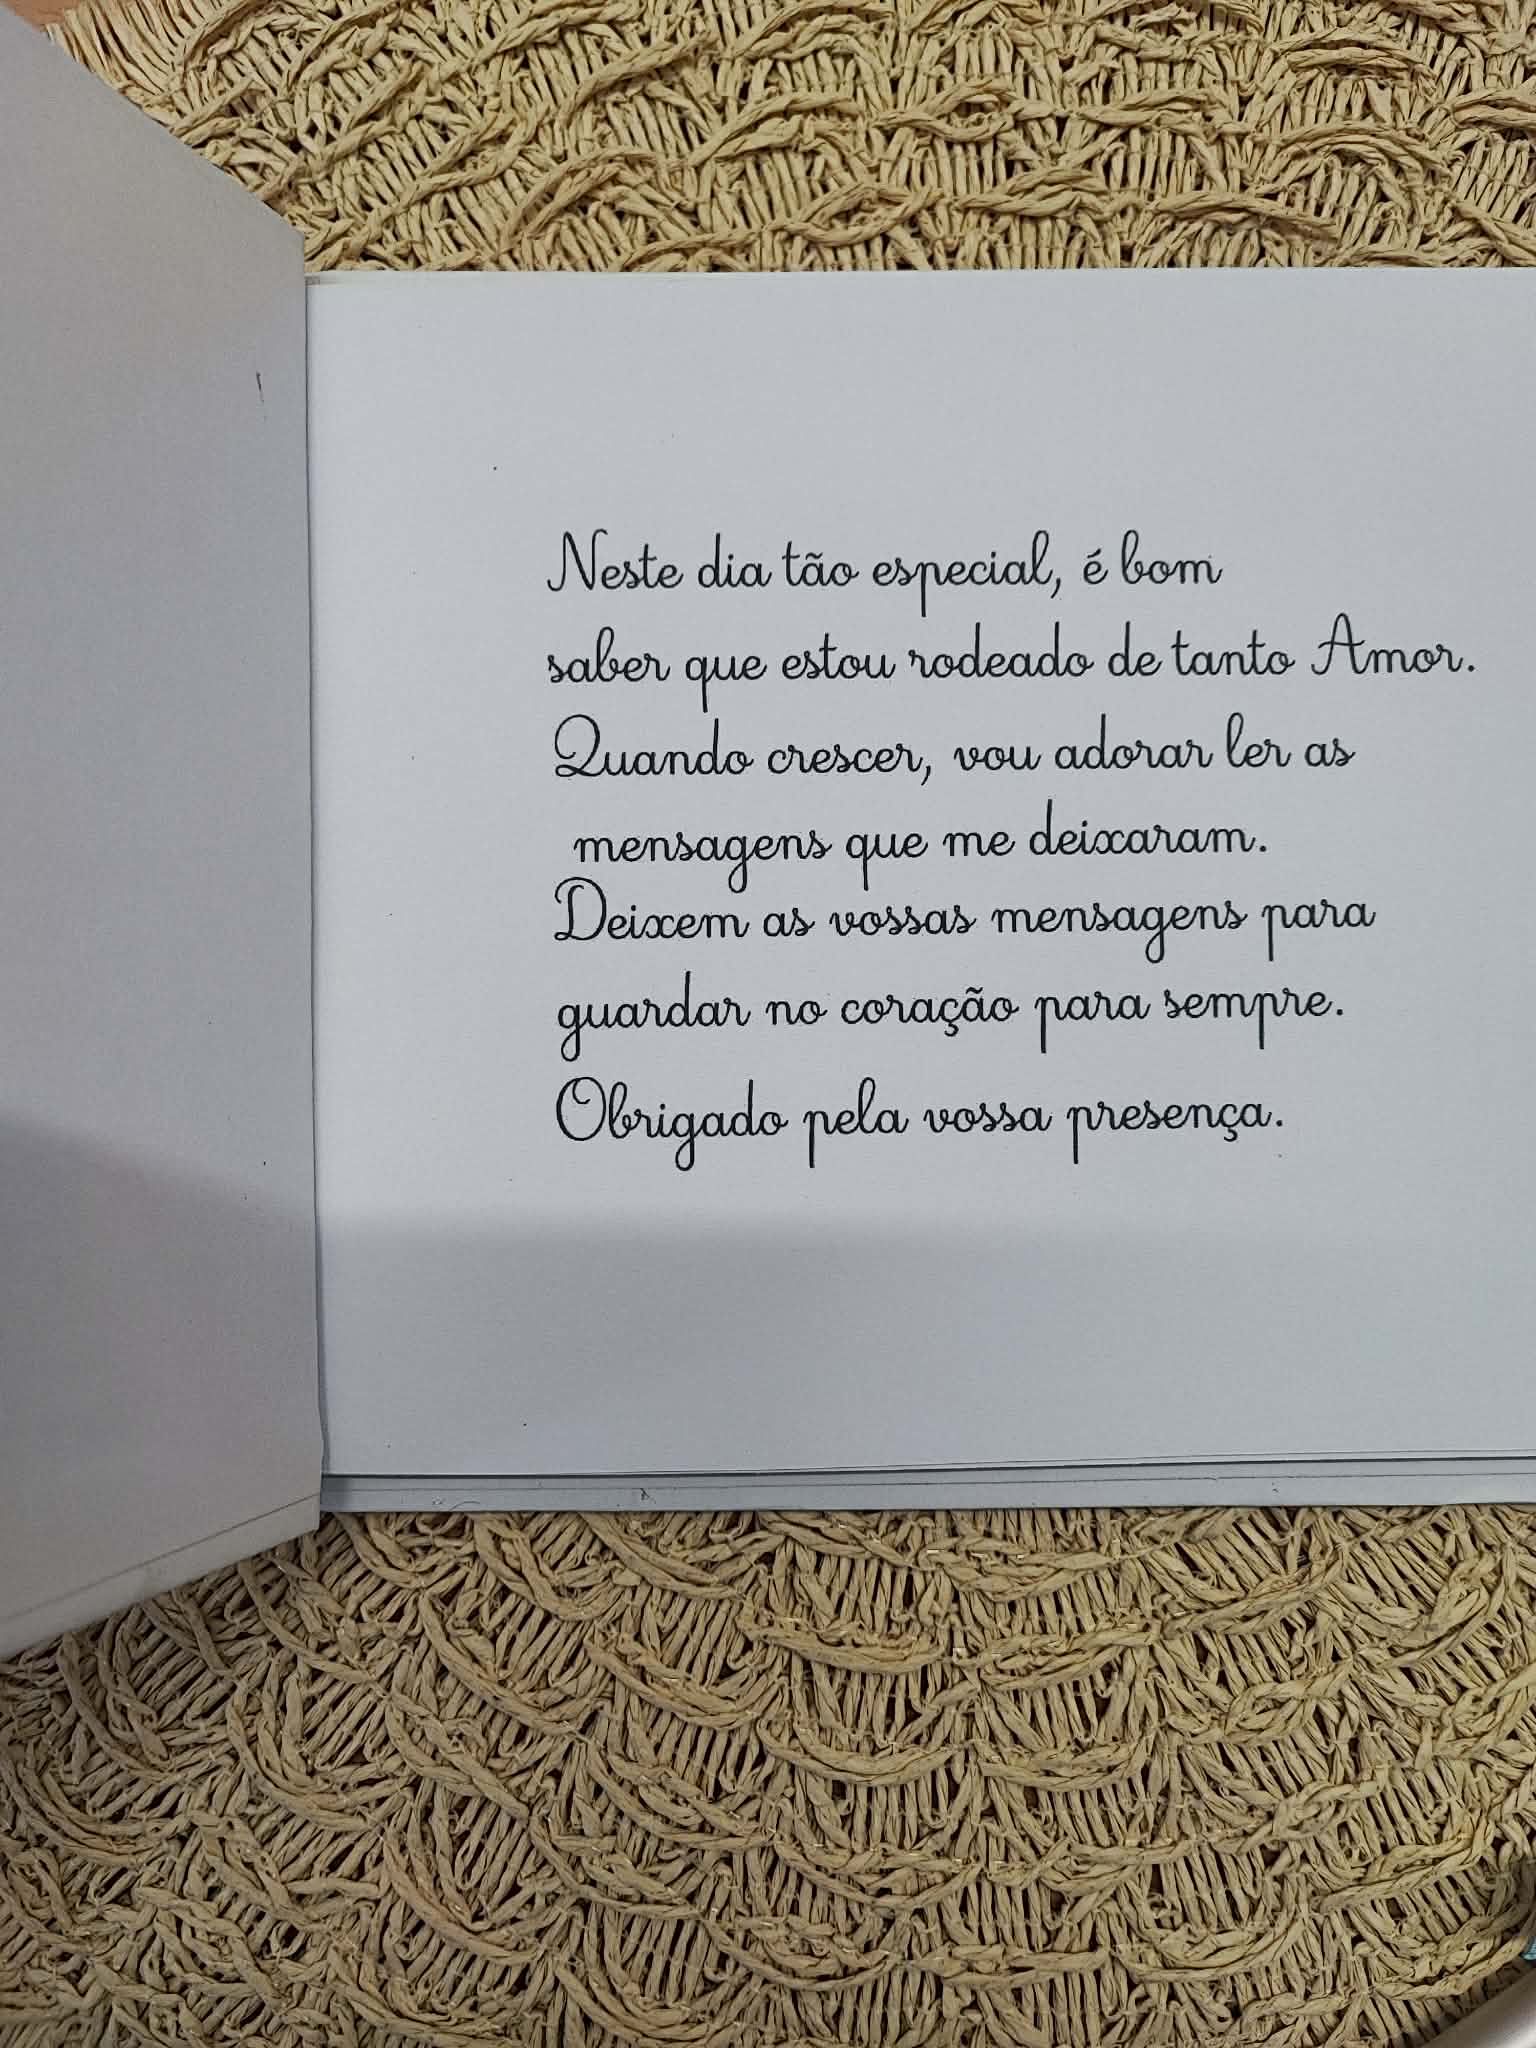 Neste dia tão especial, é bom
saber que estou rodeado de tanto Amor.
Quando crescer, vou adorar ler as
mensagens que me deixaram.
Deixem as vossas mensagens para
guardar no coração para sempre.
Obrigado pela vossa presença.